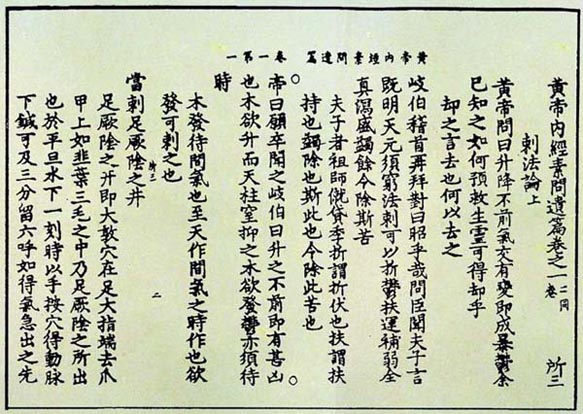 黃帝內經素問遺篇卷之一 二同卷 所三
刺法論上
黃帝問曰升降不前氣交有變即成暴鬱余
已知之如何預救生靈可得却乎
却之言去也何以去之
岐伯稽首再拜對曰昭乎哉問臣聞夫子言
既明天元須窮法刺可以折鬱扶運補弱全
真瀉盛蠲餘令除斯苦
夫子者祖師僦貸季折謂折伏也扶謂扶
持也蠲除也斯此也令除此苦也
黃帝內經素問遺篇 卷一第一
帝曰願卒聞之岐伯曰升之不前即有甚凶
也木欲升而天柱室抑之木欲發鬱亦須待
時
木發待間氣也至天作間氣之時作也欲
發可刺之也
二
當刺足厥陰之井
足厥陰之井即大敦穴在足大指端去爪
甲上如韭葉三毛之中乃足厥陰之所出
也於平旦水下一刻時以手按穴得動脉
下鍼可及三分留六呼如得氣急出之先